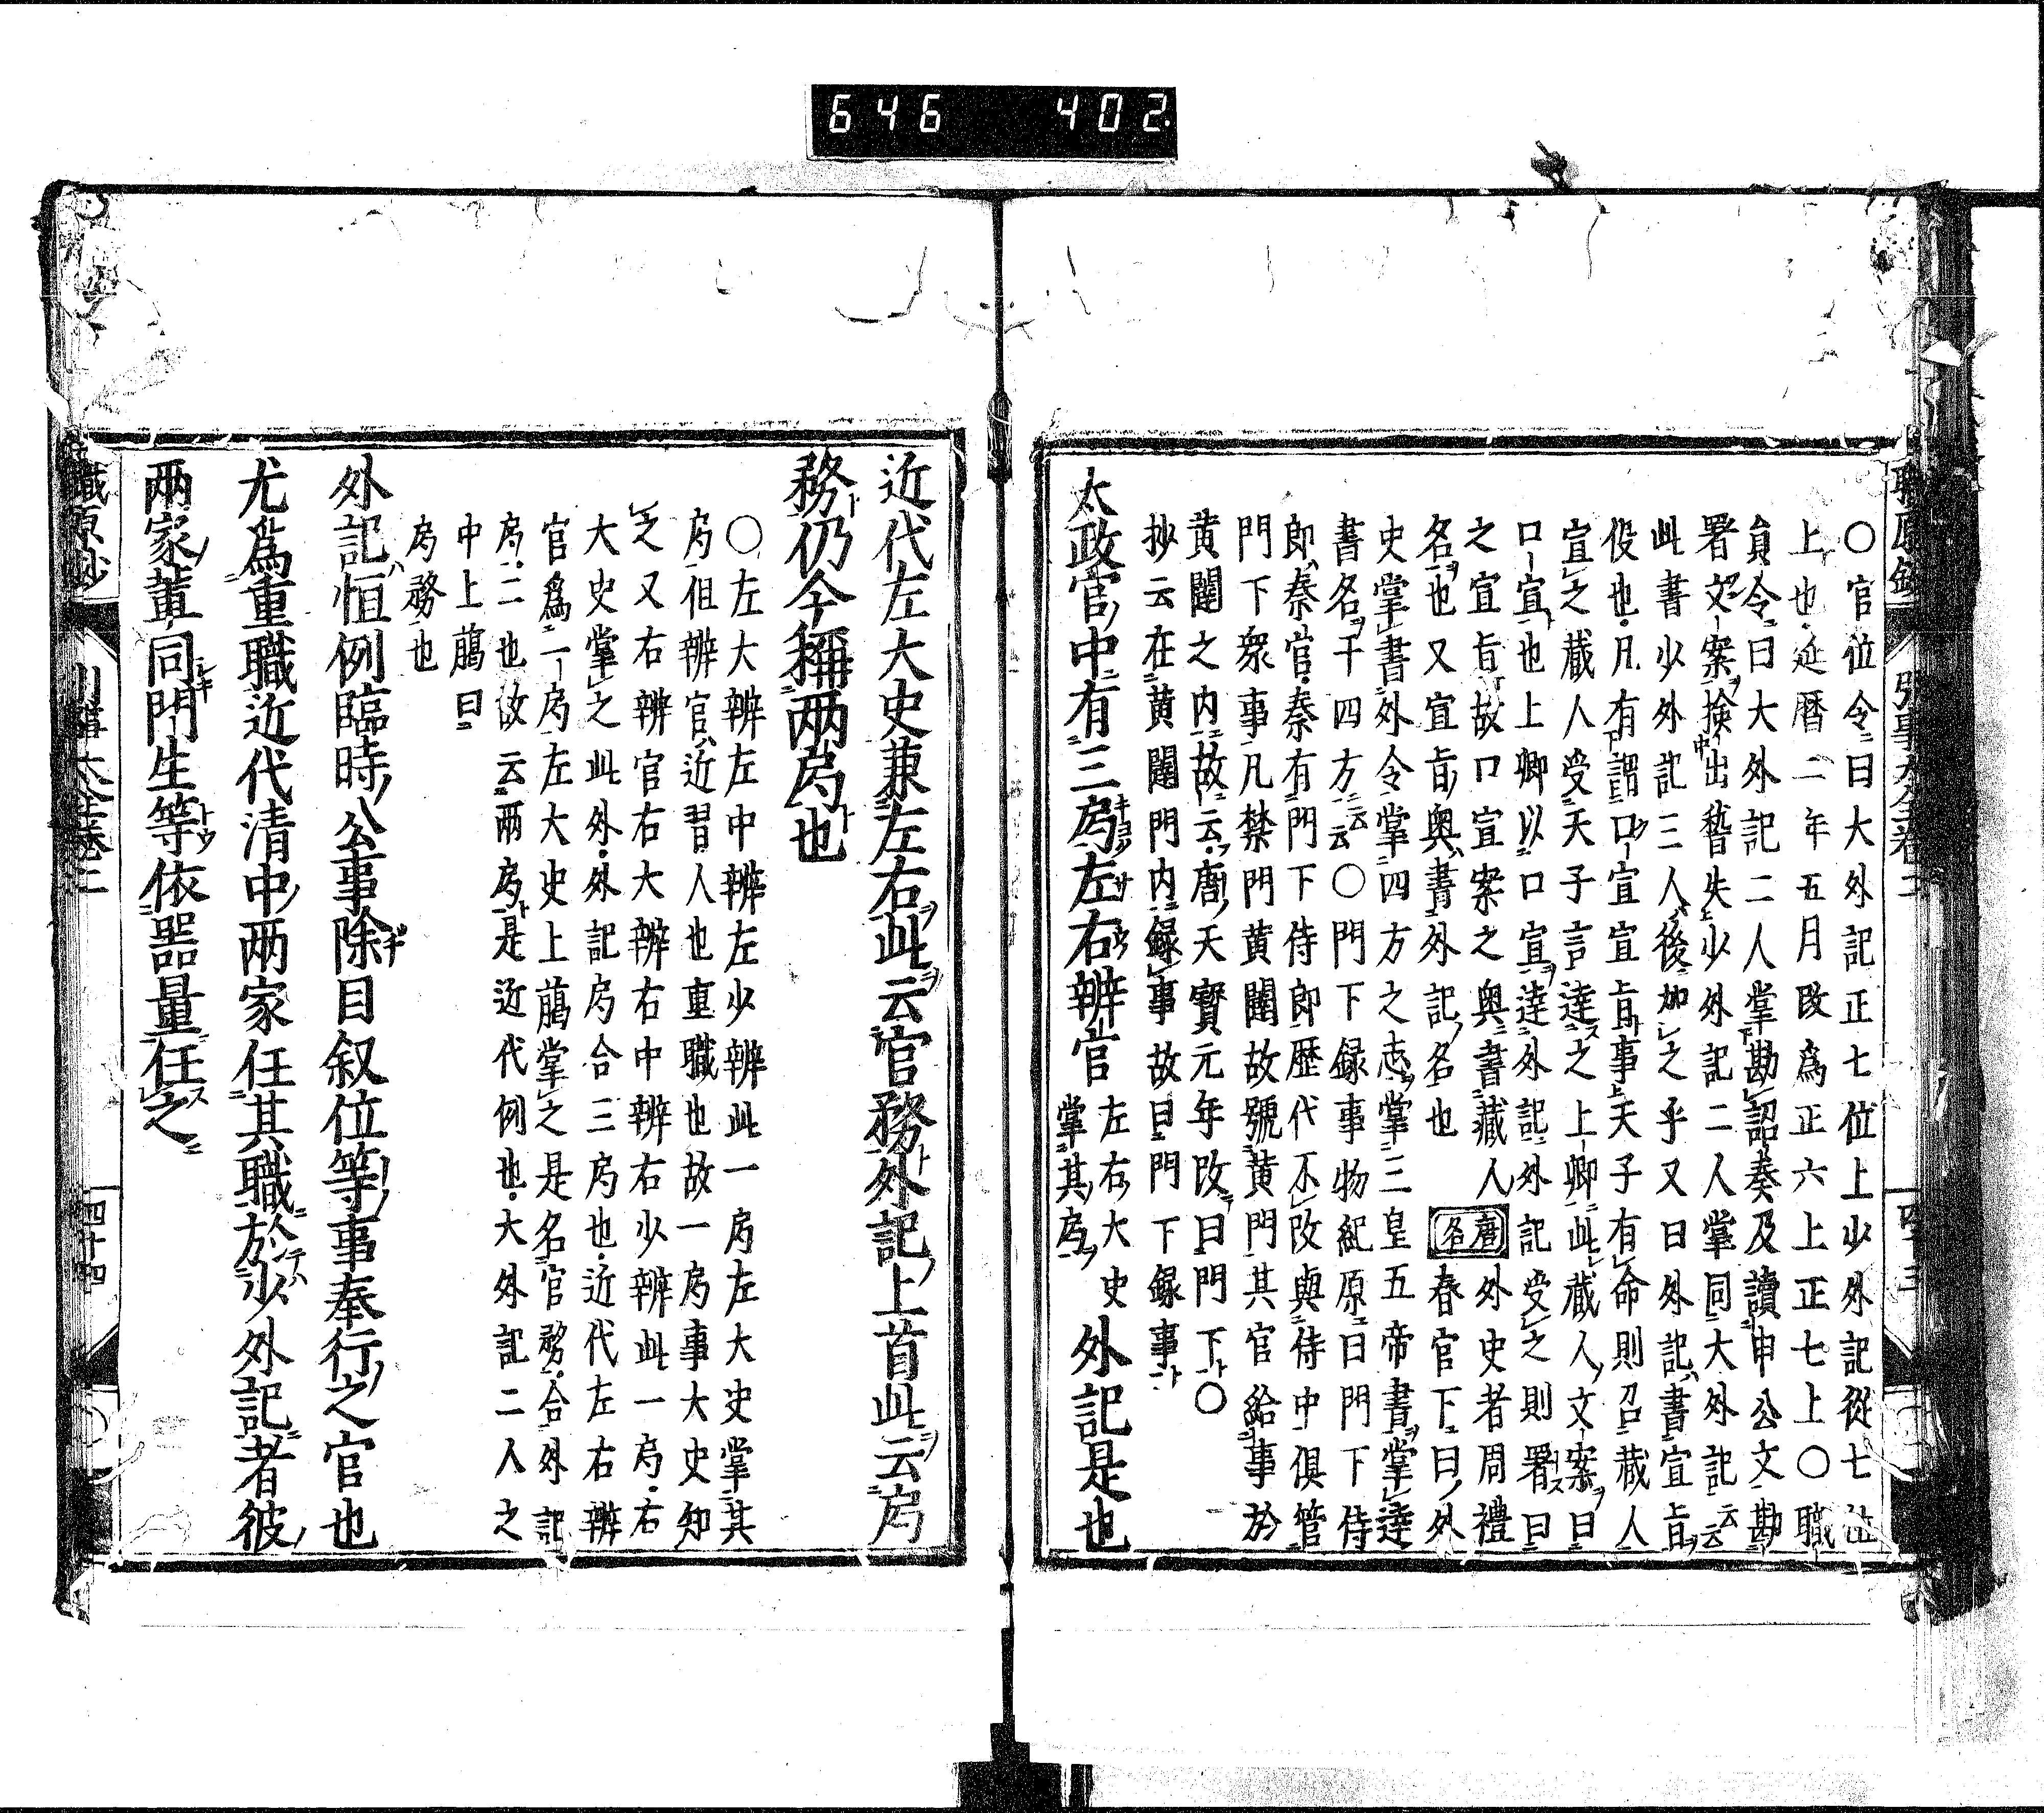 646 402
〇官位令曰大外記正七位上少外記從七位
上也延暦二年五月改爲正六上正七上〇職
員令曰大外記二人掌勘詔奏及讀申公文勘
署文案撿出稽失少外記二人掌同大外記云云
此書少外記三人後加之乎又曰外記書宣旨
役也凡有謂口宣宣旨事天子有命則召藏人
宣之藏人受天子言達之上卿此藏人文案曰
口宣也上卿以口宣達外記外記受之則署曰
之宣旨故口宣案之奥書藏人 唐名 外史者周禮
名也又宣旨奥書外記名也 春官下曰外
史掌書外令掌四方之志掌三皇五帝書掌達
書名于四方云云〇門下録事物紀原曰門下侍
郎秦官秦有門下侍郎歴代不改與侍中俱管
門下衆事凡禁門黄闥故號黄門其官給事於
黄闥之内故云唐天寳元年改曰門下〇
抄云在黄闥門内録事故曰門下録事
太政官中有三局左右辨官 左右大史掌其局 外記是也
近代左大史兼左右此云官務外記上首此云局
務仍今稱兩局也
〇左大辨左中辨左少辨此一局左大史掌其
局但辨官近習人也重職也故一局事大史知
之又右辨官右大辨右中辨右少辨此一局右
大史掌之此外外記局合三局也近代左右辨
官爲一局左大史上﨟掌之是名官務合外記
局二也故云兩局是近代例也大外記二人之
中上﨟曰
局務也
外記恒例臨時公事除目叙位等事奉行之官也
尤爲重職近代清中兩家任其職於少外記者彼
兩家輩同門生等依器量任之
職原鈔
四十四